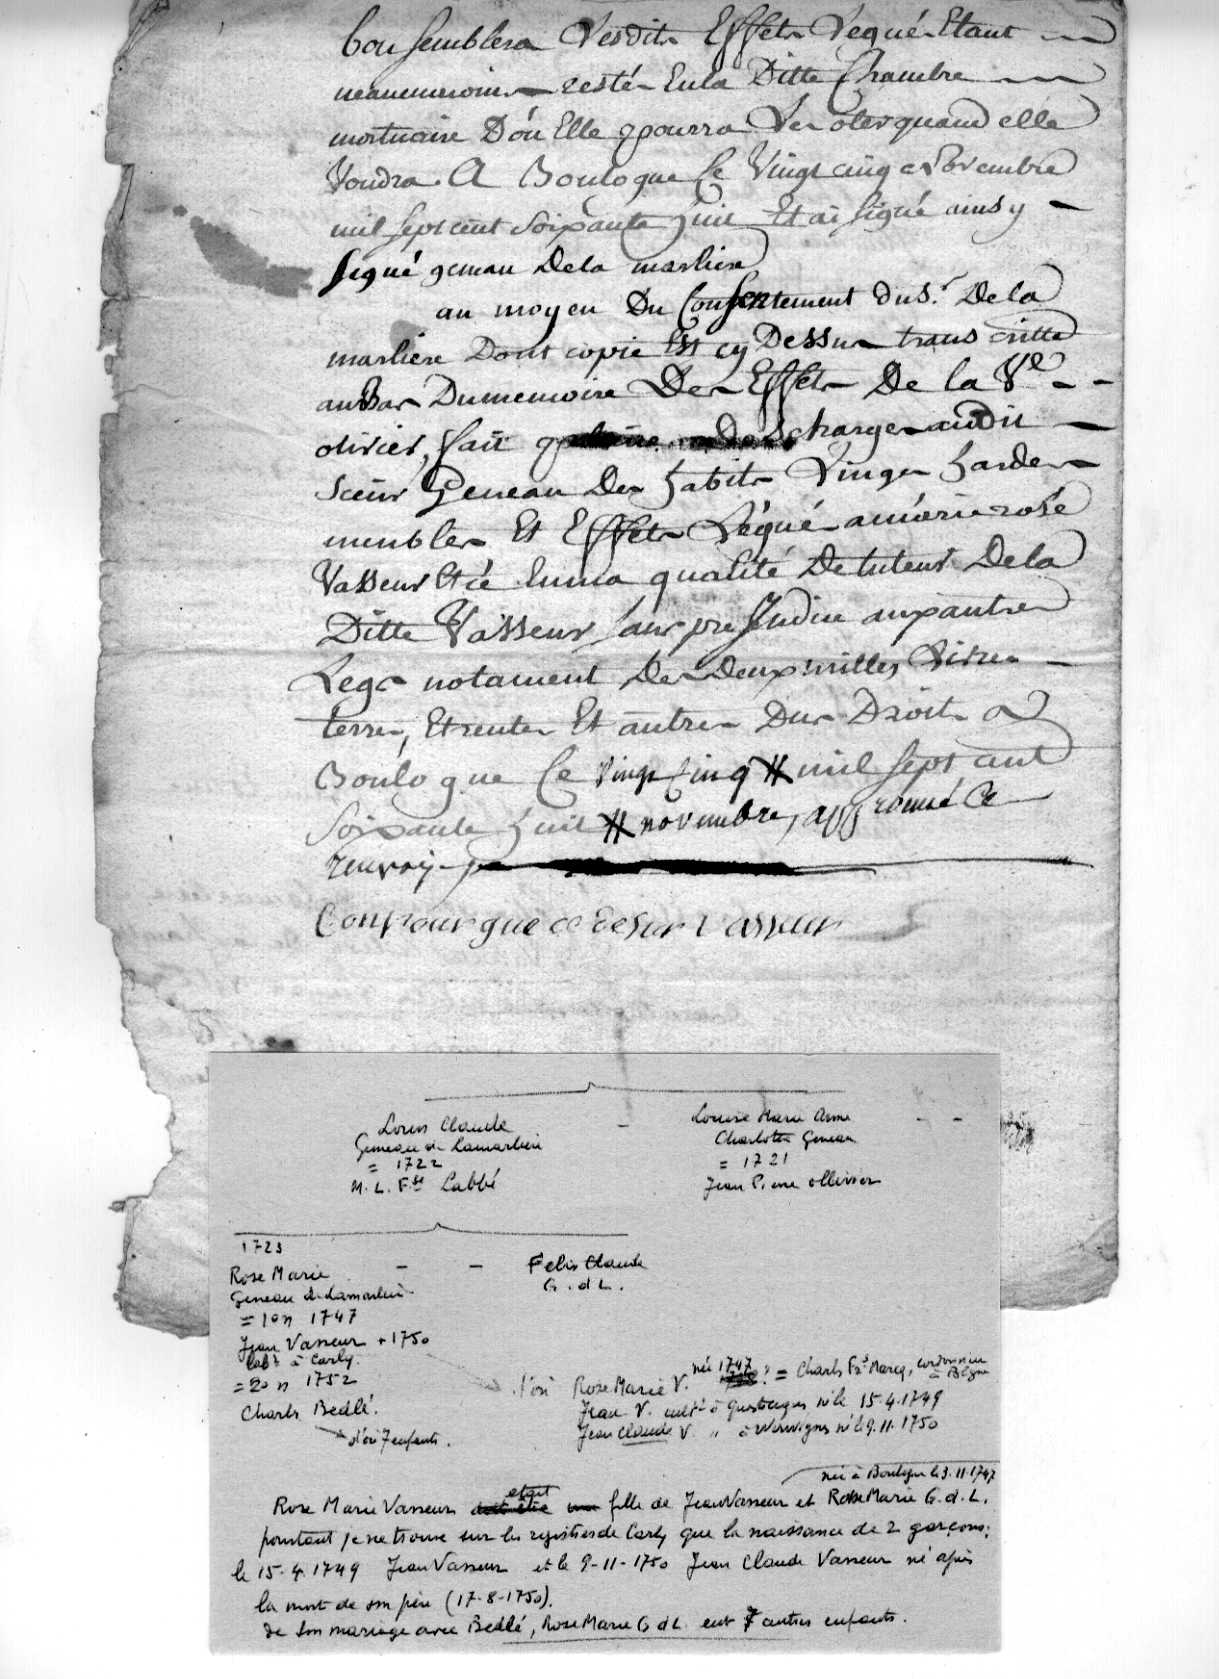 bon semblera Lesdits Effets Legué Etant
neanmoins resté En la Ditte Chambre
mortuaire D'où Elle pourra Les oter quand elle
Voudra. A Boulogne Ce Vingt cinq Novembre
mil sept cent soixante huit Et ai signé ainsy
signé geneau Dela marliere
au moyen Du Consentement du Sr. De la
marliere Dont copie Est cy Dessus transcritte
au Bas Du memoire Des Effets De la Ve
olivier, fait descharge audit
sieur Geneau Des habits Linges hardes
meubles Et Effets Légué a marie rose
Vasseur Et ce En ma qualité De tuteur De la
Ditte Vasseur sans prejudice aux autres
Legs notament Des Deux milles Livres
terres, Et rentes Et autres Dus Droits a
Boulogne Ce vingt Cinq # mil sept cent
soixante huit # novembre, approuvé Ce
renvoy
Vasseur
Louis Claude
Geneau de Lamarlière
= 1722
M. L. Fse Labbé
Louise Marie Anne
Charlotte Geneau
= 1721
Jean Pierre Ollivier
1723
Rose Marie
Geneau de Lamarlière
= 1o n 1747
Jean Vasseur + 1750
labr à Carly.
= 2o n 1752
Charles Bedlé.
d'où 7 enfants.
Felix Claude
G. d L.
d'où Rose Marie V. née 1747 ? = Charles Fs Marcq, cordonnier à Blgne
Jean V. cultr à Questreques né le 15.4.1749
Jean Claude V. " à Wirwignes né le 9.11.1750
née à Boulogne le 3.11.1747
Rose Marie Vasseur était fille de Jean Vasseur et Rose Marie G. d. L.
pourtant je ne trouve sur les registres de Carly que la naissance de 2 garçons:
le 15.4.1749 Jean Vasseur et le 9-11-1750 Jean Claude Vasseur né après
la mort de son père (17-8-1750).
De son mariage avec Bedlé, Rose Marie G d L. eut 7 autres enfants.